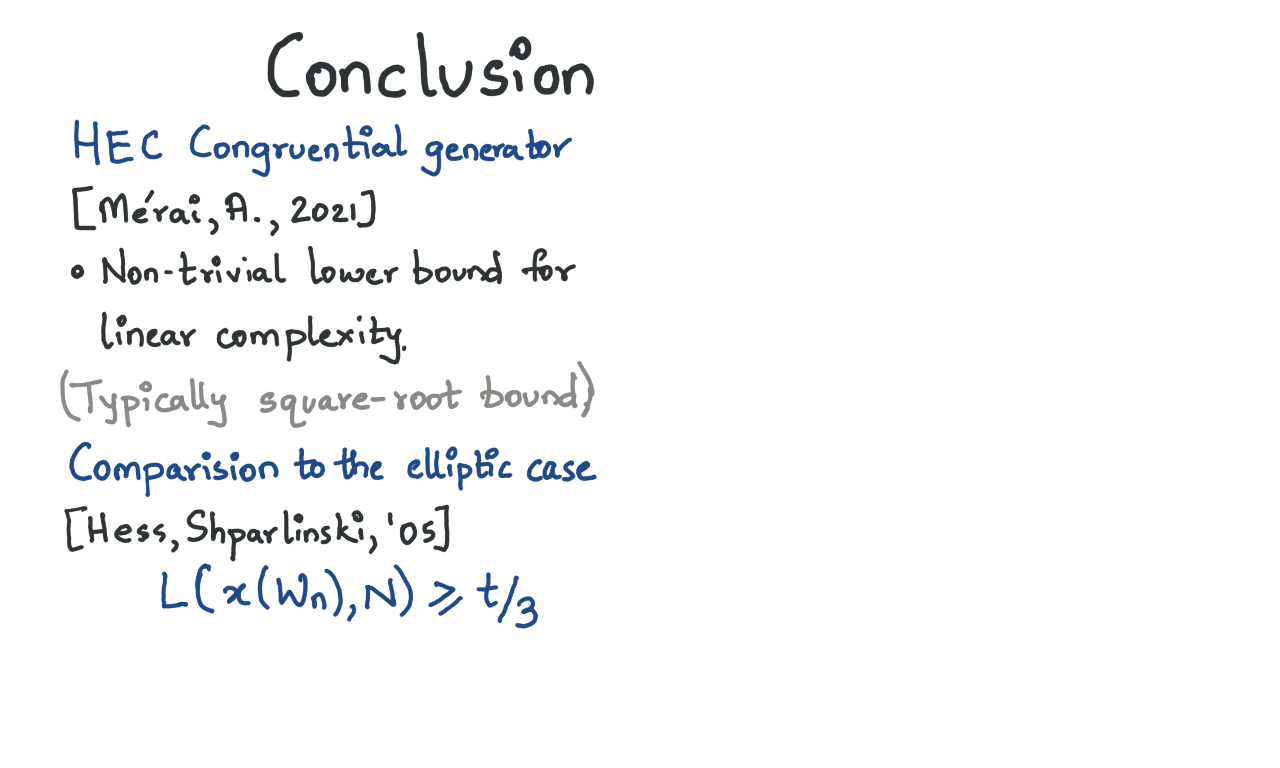 Conclusion
HEC Congruential generator
[Mérai, A., 2021]
• Non-trivial lower bound for
linear complexity.
(Typically square-root bound)
Comparision to the elliptic case
[Hess, Shparlinski, '05]
L(x(Wn), N) ⩾ t/3